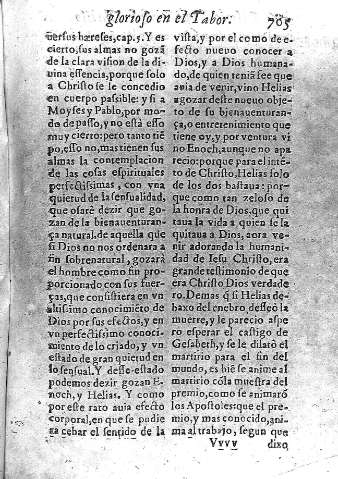 glorioso en el Tabor. 705
uersus hæreses, cap. 5. Y es
cierto, sus almas no gozã
de la clara vision de la di-
uina essencia, porque solo
a Christo se le concedio
en cuerpo passible: y si a
Moyses y Pablo, por mo-
do de passo, y no està esso
muy cierto: pero tanto tiẽ
po, esso no, mas tienen sus
almas la contemplacion
de las cosas espirituales
perfectissimas, con vna
quietud de la sensualidad,
que osarè dezir que go-
zan de la bienauenturan-
ça natural, de aquella que
si Dios no nos ordenara a
fin sobrenatural, gozarà
el hombre como fin pro-
porcionado con sus fuer-
ças, que consistiera en vn
altissimo conocimiẽto de
Dios por sus efectos, y en
vn perfectissimo conoci-
miento de lo criado, y vn
estado de gran quietud en
lo sensual. Y desse estado
podemos dezir gozan E-
noch, y Helias. Y como
por este rato auia efecto
corporal, en que se pudie
ra cebar el sentido de la
vista, y por el como de e-
fecto nueuo conocer a
Dios, y a Dios humana-
do, de quien tenia fee que
auia de venir, vino Helias
a gozar deste nueuo obje-
to de su bienauenturan-
ça, o entretenimiento que
tiene oy, y por ventura vi
no Enoch, aunque no apa
recio: porque para el intẽ-
to de Christo, Helias solo
de los dos bastaua: por-
que como tan zeloso de
la honra de Dios, que qui
taua la vida a quien se la
quitaua a Dios, aora ve-
nir adorando la humani-
dad de Iesu Christo, era
grande testimonio de que
era Christo Dios verdade
ro. Demas q̃ si Helias de-
baxo del enebro, desseò la
muerte, y le parecio aspe-
ro esperar el castigo de
Gesabeth, y se le dilatò el
martirio para el fin del
mundo, es biẽ se anime al
martirio cõ la muestra del
premio, como se animarõ
los Apostoles: que el pre-
mio, y mas conocido, ani-
ma al trabajo, segun que
Vvvv dixo